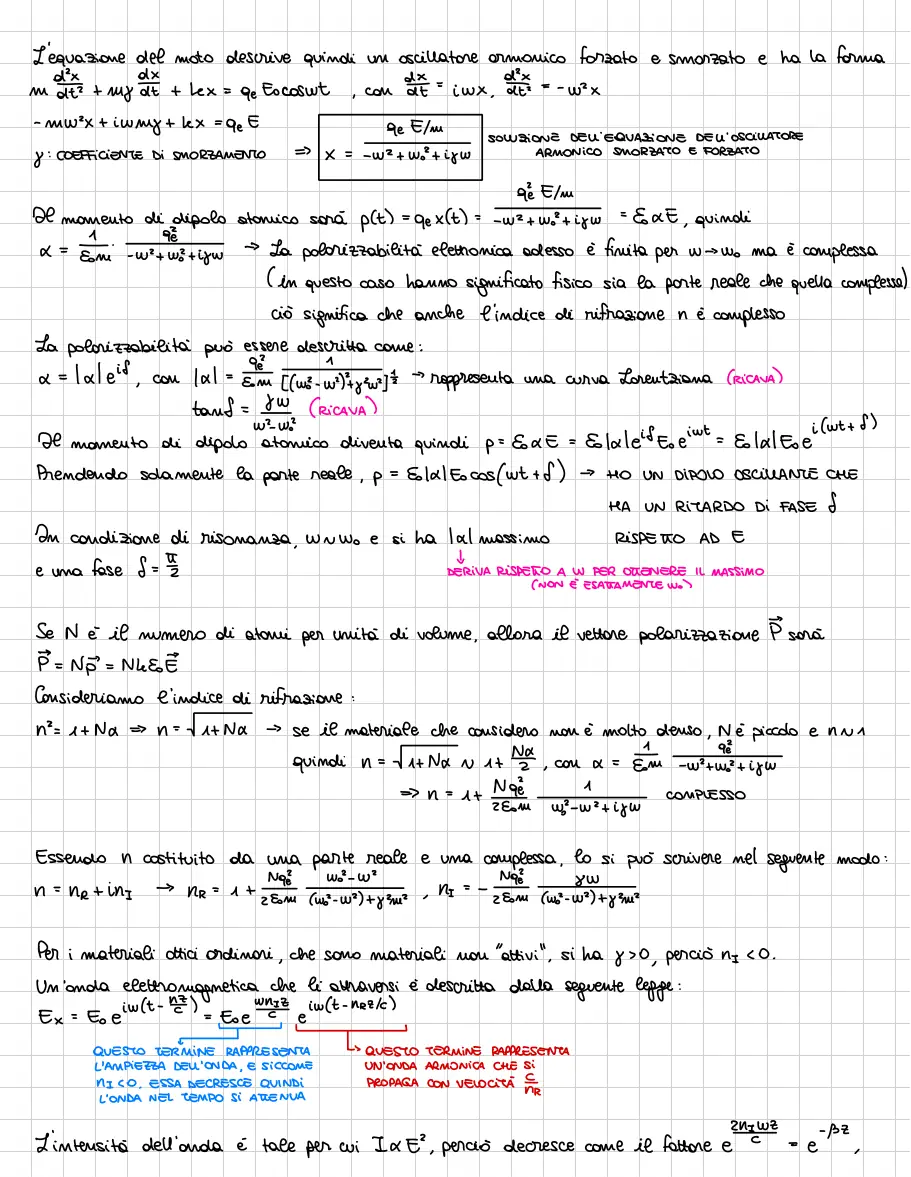 L'equazione del moto descrive quindi un oscillatore armonico forzato e smorzato e ha la forma
m d²x/dt² + mγ dx/dt + kx = qₑ E₀cosωt , con dx/dt = iωx, d²x/dt² = -ω²x
-mω²x + iωmγ + kx = qₑE
γ: COEFFICIENTE DI SMORZAMENTO ⇒ x = (qₑ E/m)/(-ω² + ω₀² + iγω) SOLUZIONE DELL'EQUAZIONE DELL'OSCILLATORE
ARMONICO SMORZATO E FORZATO
Il momento di dipolo atomico sarà p(t) = qₑx(t) = (qₑ² E/m)/(-ω² + ω₀² + iγω) = ε₀αE, quindi
α = 1/(ε₀m) · qₑ²/(-ω² + ω₀² + iγω) → La polarizzabilità elettronica adesso è finita per ω→ω₀ ma è complessa
(in questo caso hanno significato fisico sia la parte reale che quella complessa)
ciò significa che anche l'indice di rifrazione n è complesso
La polarizzabilità può essere descritta come:
α = |α|e^{iδ}, con |α| = qₑ²/(ε₀m) 1/[(ω₀²-ω²)²+γ²ω²]^{1/2} → rappresenta una curva Lorentziana (RICAVA)
tanδ = γω/(ω²-ω₀²) (RICAVA)
Il momento di dipolo atomico diventa quindi p = ε₀αE = ε₀|α|e^{iδ}E₀e^{iωt} = ε₀|α|E₀e^{i(ωt+δ)}
Prendendo solamente la parte reale, p = ε₀|α|E₀cos(ωt+δ) → HO UN DIPOLO OSCILLANTE CHE
HA UN RITARDO DI FASE δ
In condizione di risonanza, ω∼ω₀ e si ha |α| massimo RISPETTO AD E
e una fase δ = π/2 ↓ DERIVA RISPETTO A ω PER OTTENERE IL MASSIMO
(NON È ESATTAMENTE ω₀)
Se N è il numero di atomi per unità di volume, allora il vettore polarizzazione P⃗ sarà
P⃗ = Np⃗ = Nkε₀E⃗
Consideriamo l'indice di rifrazione:
n² = 1+Nα ⇒ n = √(1+Nα) → se il materiale che considero non è molto denso, N è piccolo e n∼1
quindi n = √(1+Nα) ∼ 1+ Nα/2 , con α = 1/(ε₀m) qₑ²/(-ω²+ω₀²+iγω)
⇒ n = 1+ Nqₑ²/(2ε₀m) 1/(ω₀²-ω²+iγω) COMPLESSO
Essendo n costituito da una parte reale e una complessa, lo si può scrivere nel seguente modo:
n = n_R + in_I → n_R = 1 + Nqₑ²/(2ε₀m) (ω₀²-ω²)/((ω₀²-ω²)+γ²m²) , n_I = - Nqₑ²/(2ε₀m) γω/((ω₀²-ω²)+γ²m²)
Per i materiali ottici ordinari, che sono materiali non "attivi", si ha γ>0, perciò n_I<0.
Un'onda elettromagnetica che li attraversi è descritta dalla seguente legge:
Eₓ = E₀e^{iω(t-nz/c)} = E₀e^{ωn_Iz/c} e^{iω(t-n_Rz/c)}
QUESTO TERMINE RAPPRESENTA
L'AMPIEZZA DELL'ONDA, E SICCOME
n_I<0, ESSA DECRESCE QUINDI
L'ONDA NEL TEMPO SI ATTENUA
QUESTO TERMINE RAPPRESENTA
UN'ONDA ARMONICA CHE SI
PROPAGA CON VELOCITÀ c/n_R
L'intensità dell'onda è tale per cui I∝E², perciò decresce come il fattore e^{2n_Iωz/c} = e^{-βz},